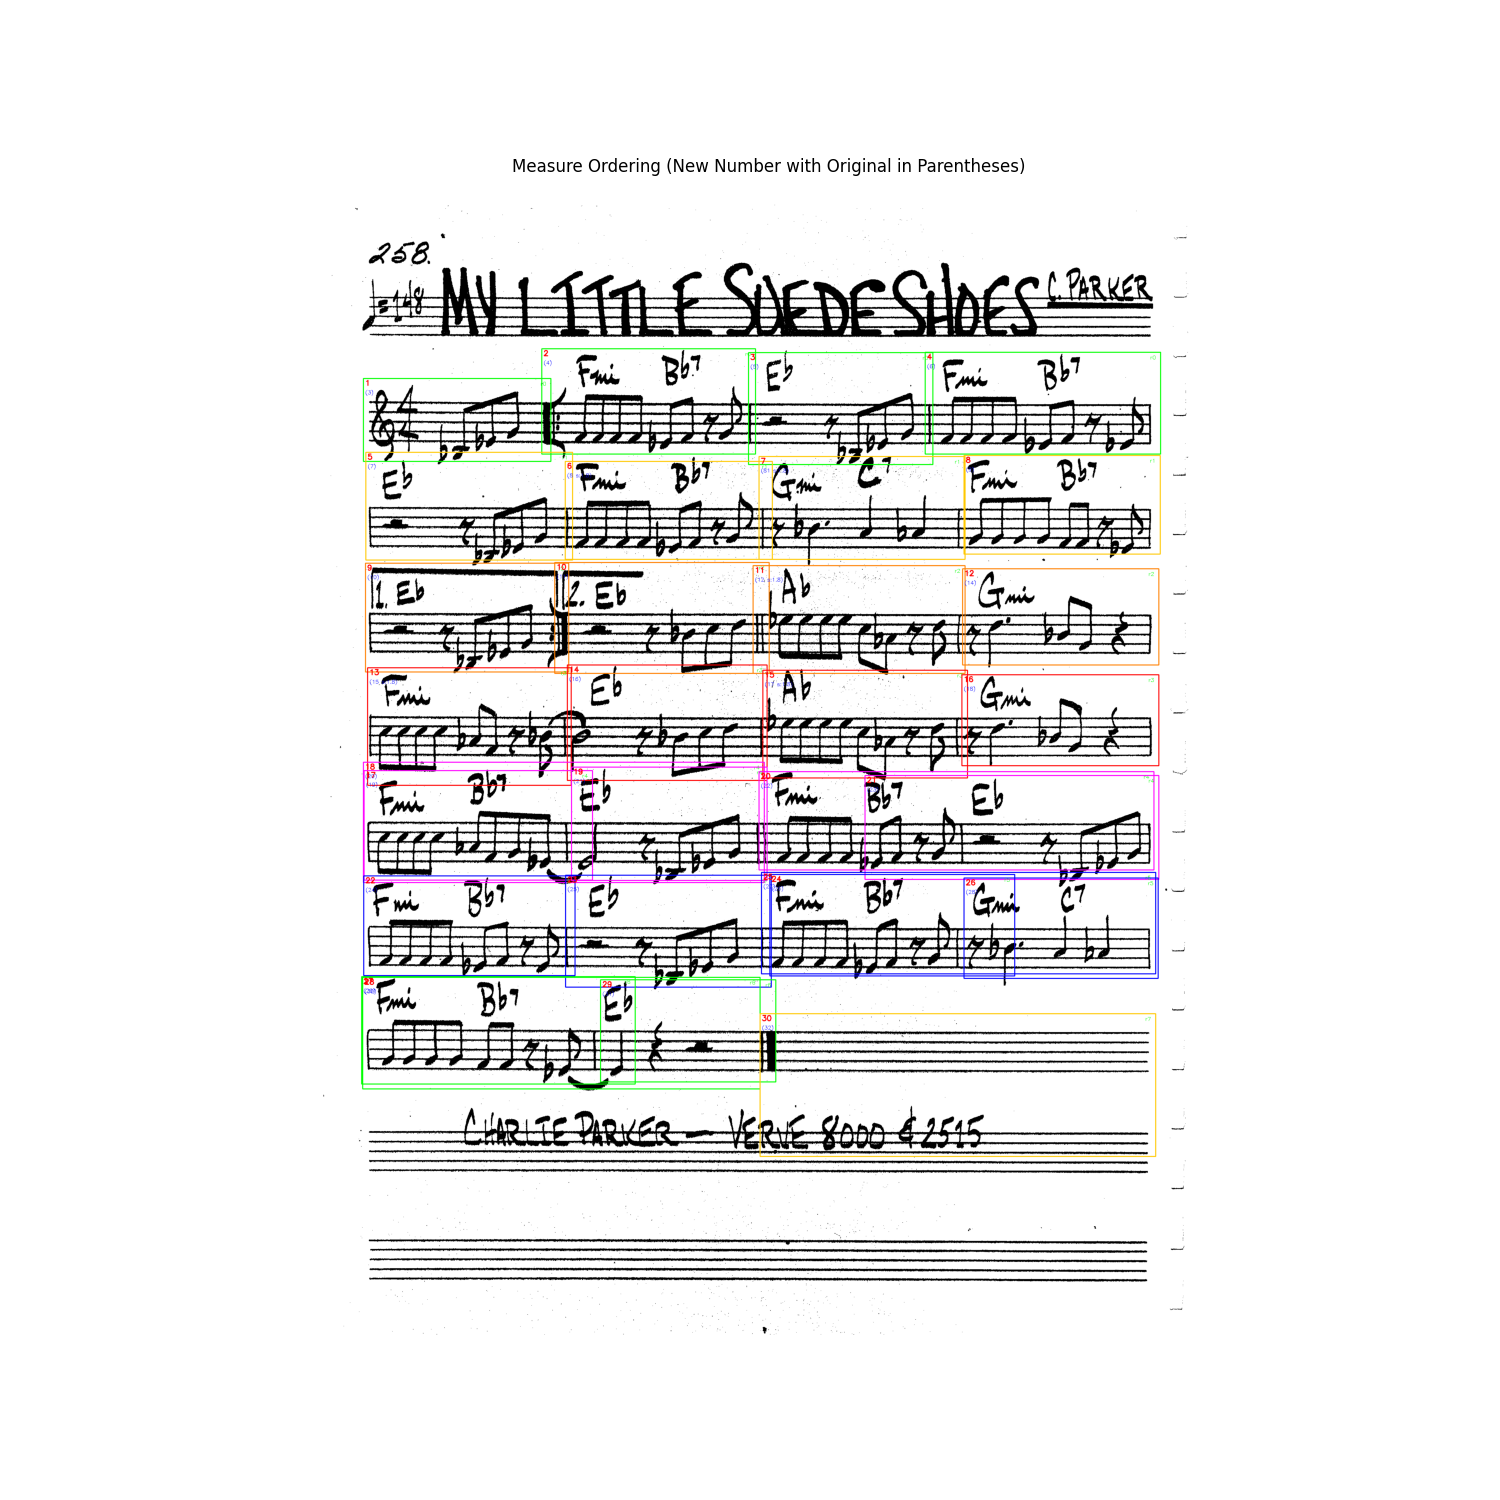 Measure Ordering (New Number with Original in Parentheses)
258.
♩=148 MY LITTLE SUEDE SHOES C. PARKER
1 2 Fmi Bb7 3 Eb 4 Fmi Bb7
5 Eb 6 Fmi Bb7 7 Gmi C7 8 Fmi Bb7
9 1. Eb 10 2. Eb 11 Ab 12 Gmi
13 Fmi 14 Eb 15 Ab 16 Gmi
18 17 Fmi Bb7 19 Eb 20 Fmi 21 Bb7 Eb
22 Fmi Bb7 Eb 24 Fmi Bb7 26 Gmi C7
Fmi Bb7 29 Eb
30
CHARLIE PARKER — VERVE 8000 & 2515